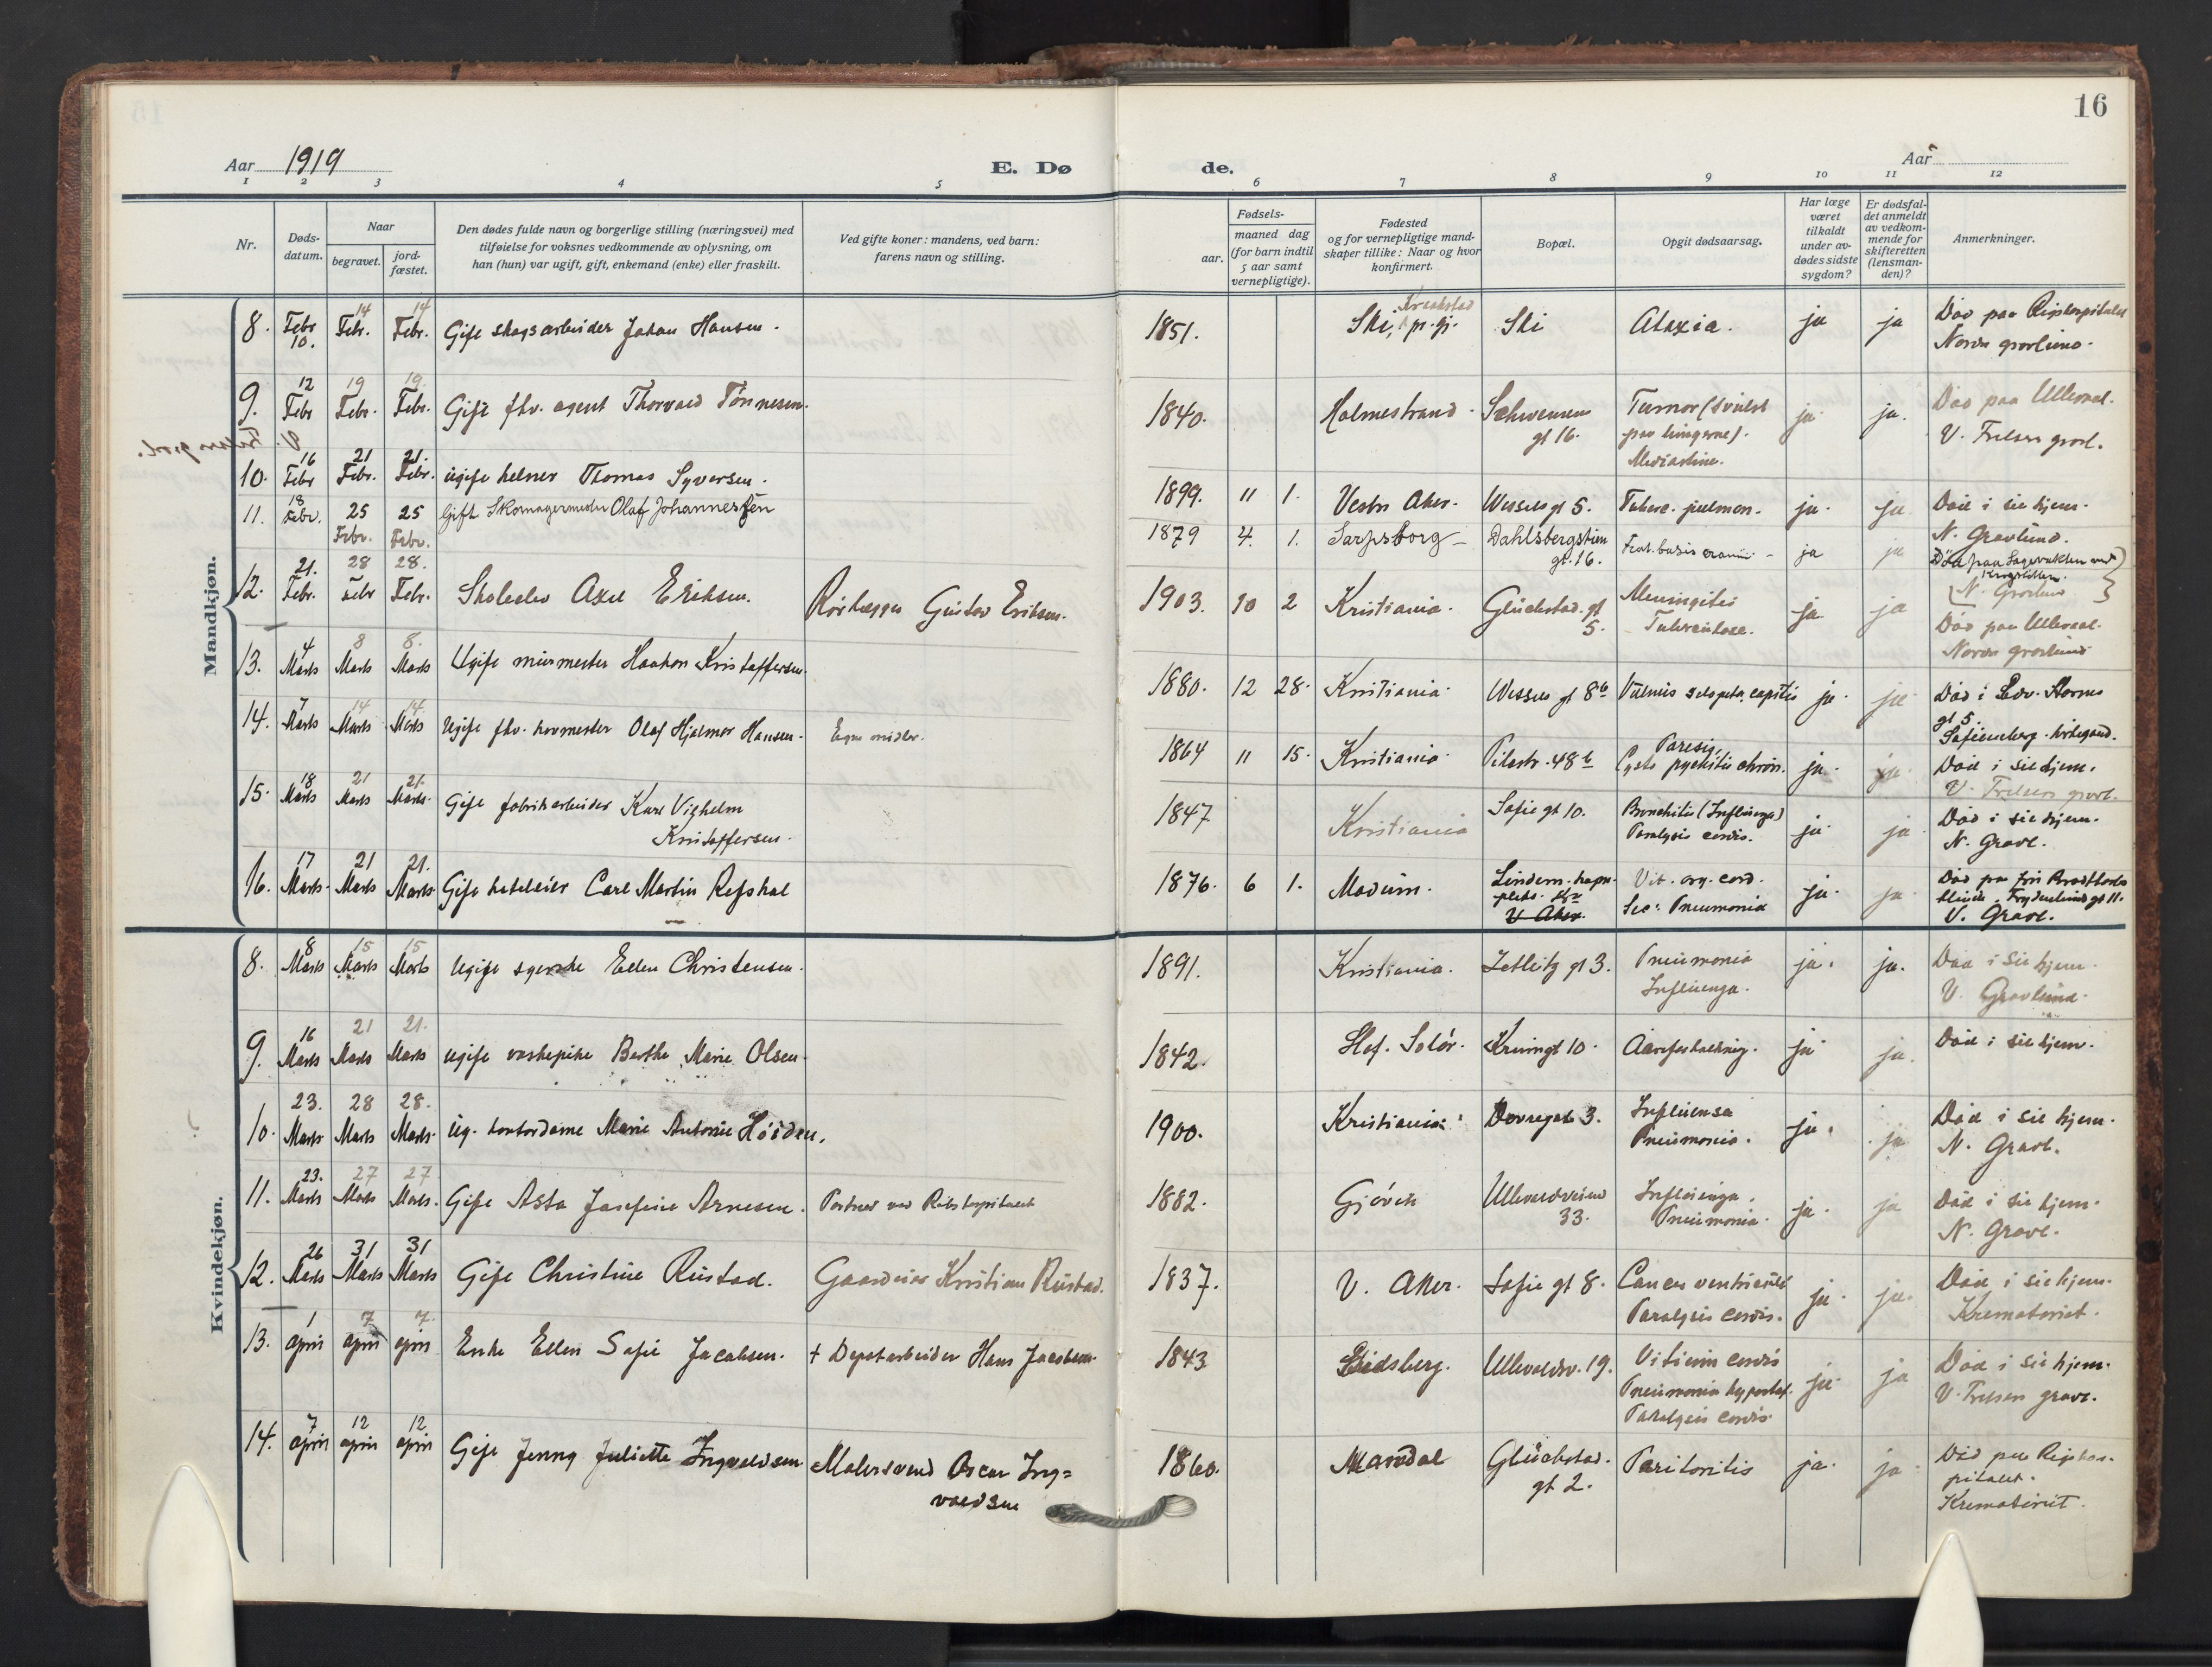 16
Aar 1919
E. Dø
de.
Aar
1 2 3 4 5 6 7 8 9 10 11 12
Nr.
Døds-
datum.
Naar
begravet.
jord-
fæstet.
Den dødes fulde navn og borgerlige stilling (næringsvei) med
tilføielse for voksnes vedkommende av oplysning, om
han (hun) var ugift, gift, enkemand (enke) eller fraskilt.
Ved gifte koner: mandens, ved barn:
farens navn og stilling.
Fødsels-
aar.
maaned dag
(for barn indtil
5 aar samt
vernepligtige).
Fødested
og for vernepligtige mand-
skaper tillike: Naar og hvor
konfirmert.
Bopæl.
Opgit dødsaarsag.
Har læge
været
tilkaldt
under av-
dødes sidste
sygdom?
Er dødsfal-
det anmeldt
av vedkom-
mende for
skifteretten
(lensman-
den)?
Anmerkninger.
Mandkjøn.
8. Febr 10. 14 Febr. 14 Febr. Gift skogsarbeider Johan Hansen. 1851. Ski, Kraakstad pr.gj. Ski Ataxia. ja ja Död paa Rigshospitalet
Nordre gravlund.
9. 12 Febr 19 Febr. 19. Febr. Gift fhv. agent Thorvald Tönnesen. 1840. Holmestrand. Schwensens
gt 16. Tumor (Svulst
paa lungerne).
Mediastine. ja. ja. Död paa Ulleval.
V. Frelsers gravl.
10. 16 Febr 21 Febr. 21. Febr. ugift kelner Thomas Syversen. 1899. 11 1. Vestre Aker. Wessels gt 5. Tuberc. pulmon. ja. ja Död i sit hjem.
N. Gravlund.
11. 18 Febr. 25 Febr. 25 Febr. Gift Skomagermester Olaf Johannessen 1879 4. 1. Sarpsborg Dahlsbergstien
gt. 16. Frat. basis cranii ja ja Död paa Sagevakten ved
N. Gravlund
12. 21. Febr. 28 Febr 28. Febr. Skoleelev Axel Eriksen. Rörlægger Gustav Eriksen. 1903. 10 2 Kristiania. Glückstad. gt
5. Meningitis
Tuberculose. ja ja Död paa Ulleval.
Nordre gravlund
13. 4 Marts 8 Marts 8. Marts Ugift murmester Haakon Kristoffersen. 1880. 12 28. Kristiania. Wessels gt 8b Vulnus sclopeta. capitis ja. ja Död i Edv. Storms
gt 5.
Sofienberg kirkegaard.
14. 7 Marts 14 Marts 14. Marts Ugift fhv. hovmester Olaf Hjalmar Hansen. Egne midler. 1864 11 15. Kristiania. Pilestr. 48b Paresis,
Cysto pyelitis chron. ja. ja Död i sit hjem.
V. Frelsers gravl.
15. 18 Marts 21 Marts 21. Marts. Gift fabrikarbeider Karl Vilhelm
Kristoffersen. 1847 Kristiania Sofie gt 10. Bronchitis (Influenza)
Paralysis cordis. ja. ja Död i sit hjem.
N. Gravl.
16. 17 Marts. 21 Marts 21. Marts Gift hoteleier Carl Martin Refshal 1876. 6 1. Modum. Lindern. hagn.
V. Aker. Vit. org. cord.
Sec: Pneumonia ja. ja.
V. Gravl.
Kvindekjøn.
8. 8 Marts 15 Marts 15 Marts Ugift syerske Ellen Christensen. 1891. Kristiania. Zetlitz gt 3. Pneumonia
Influenza. ja. ja. Död i sit hjem.
V. Gravlund.
9. 16 Marts 21 Marts 21. Marts ugift vaskepike Berthe Marie Olsen. 1842. Hof. Solör. Krumgt 10. Aareforkalkning. ja ja. Död i sit hjem.
10. 23. Marts 28 Marts 28. Marts. Ug. kontordame Marie Antonie Höiden. 1900. Kristiania. Dovregt 3. Influensa
Pneumonia. ja. ja Död i sit hjem.
N. Gravl.
11. 23. Marts 27 Marts 27 Marts. Gift Asta Josefine Arnesen. Portner ved Rikshospitalet 1882. Gjövik Ullevaldveien
33. Influenza.
Pneumonia. ja. ja Död i sit hjem.
N. Gravl.
12. 26 Marts 31 Marts 31 Marts Gift Christine Rustad. Gaardeier Kristian Rustad. 1837. V. Aker. Sofie gt 8. Cancer ventriculi
Paralysis cordis. ja. ja. Död i sit hjem.
Krematoriet.
13. 1 april 7 april 7. april Enke Ellen Sofie Jacobsen. + Depotarbeider Hans Jacobsen. 1843 Eidsberg. Ullevaldsv. 19. Vitium cordis
Pneumonia hypostat.
Paralysis cordis. ja. ja Död i sit hjem.
V. Frelsers gravl.
14. 7 april 12 april 12 april Gift Jenny Juliette Ingvaldsen Malersvend Oscar Ing=
valdsen 1860. Mandal Glückstad.
gt 2. Peritonitis ja. ja. Död paa Rigshos-
pitalet.
Krematoriet.